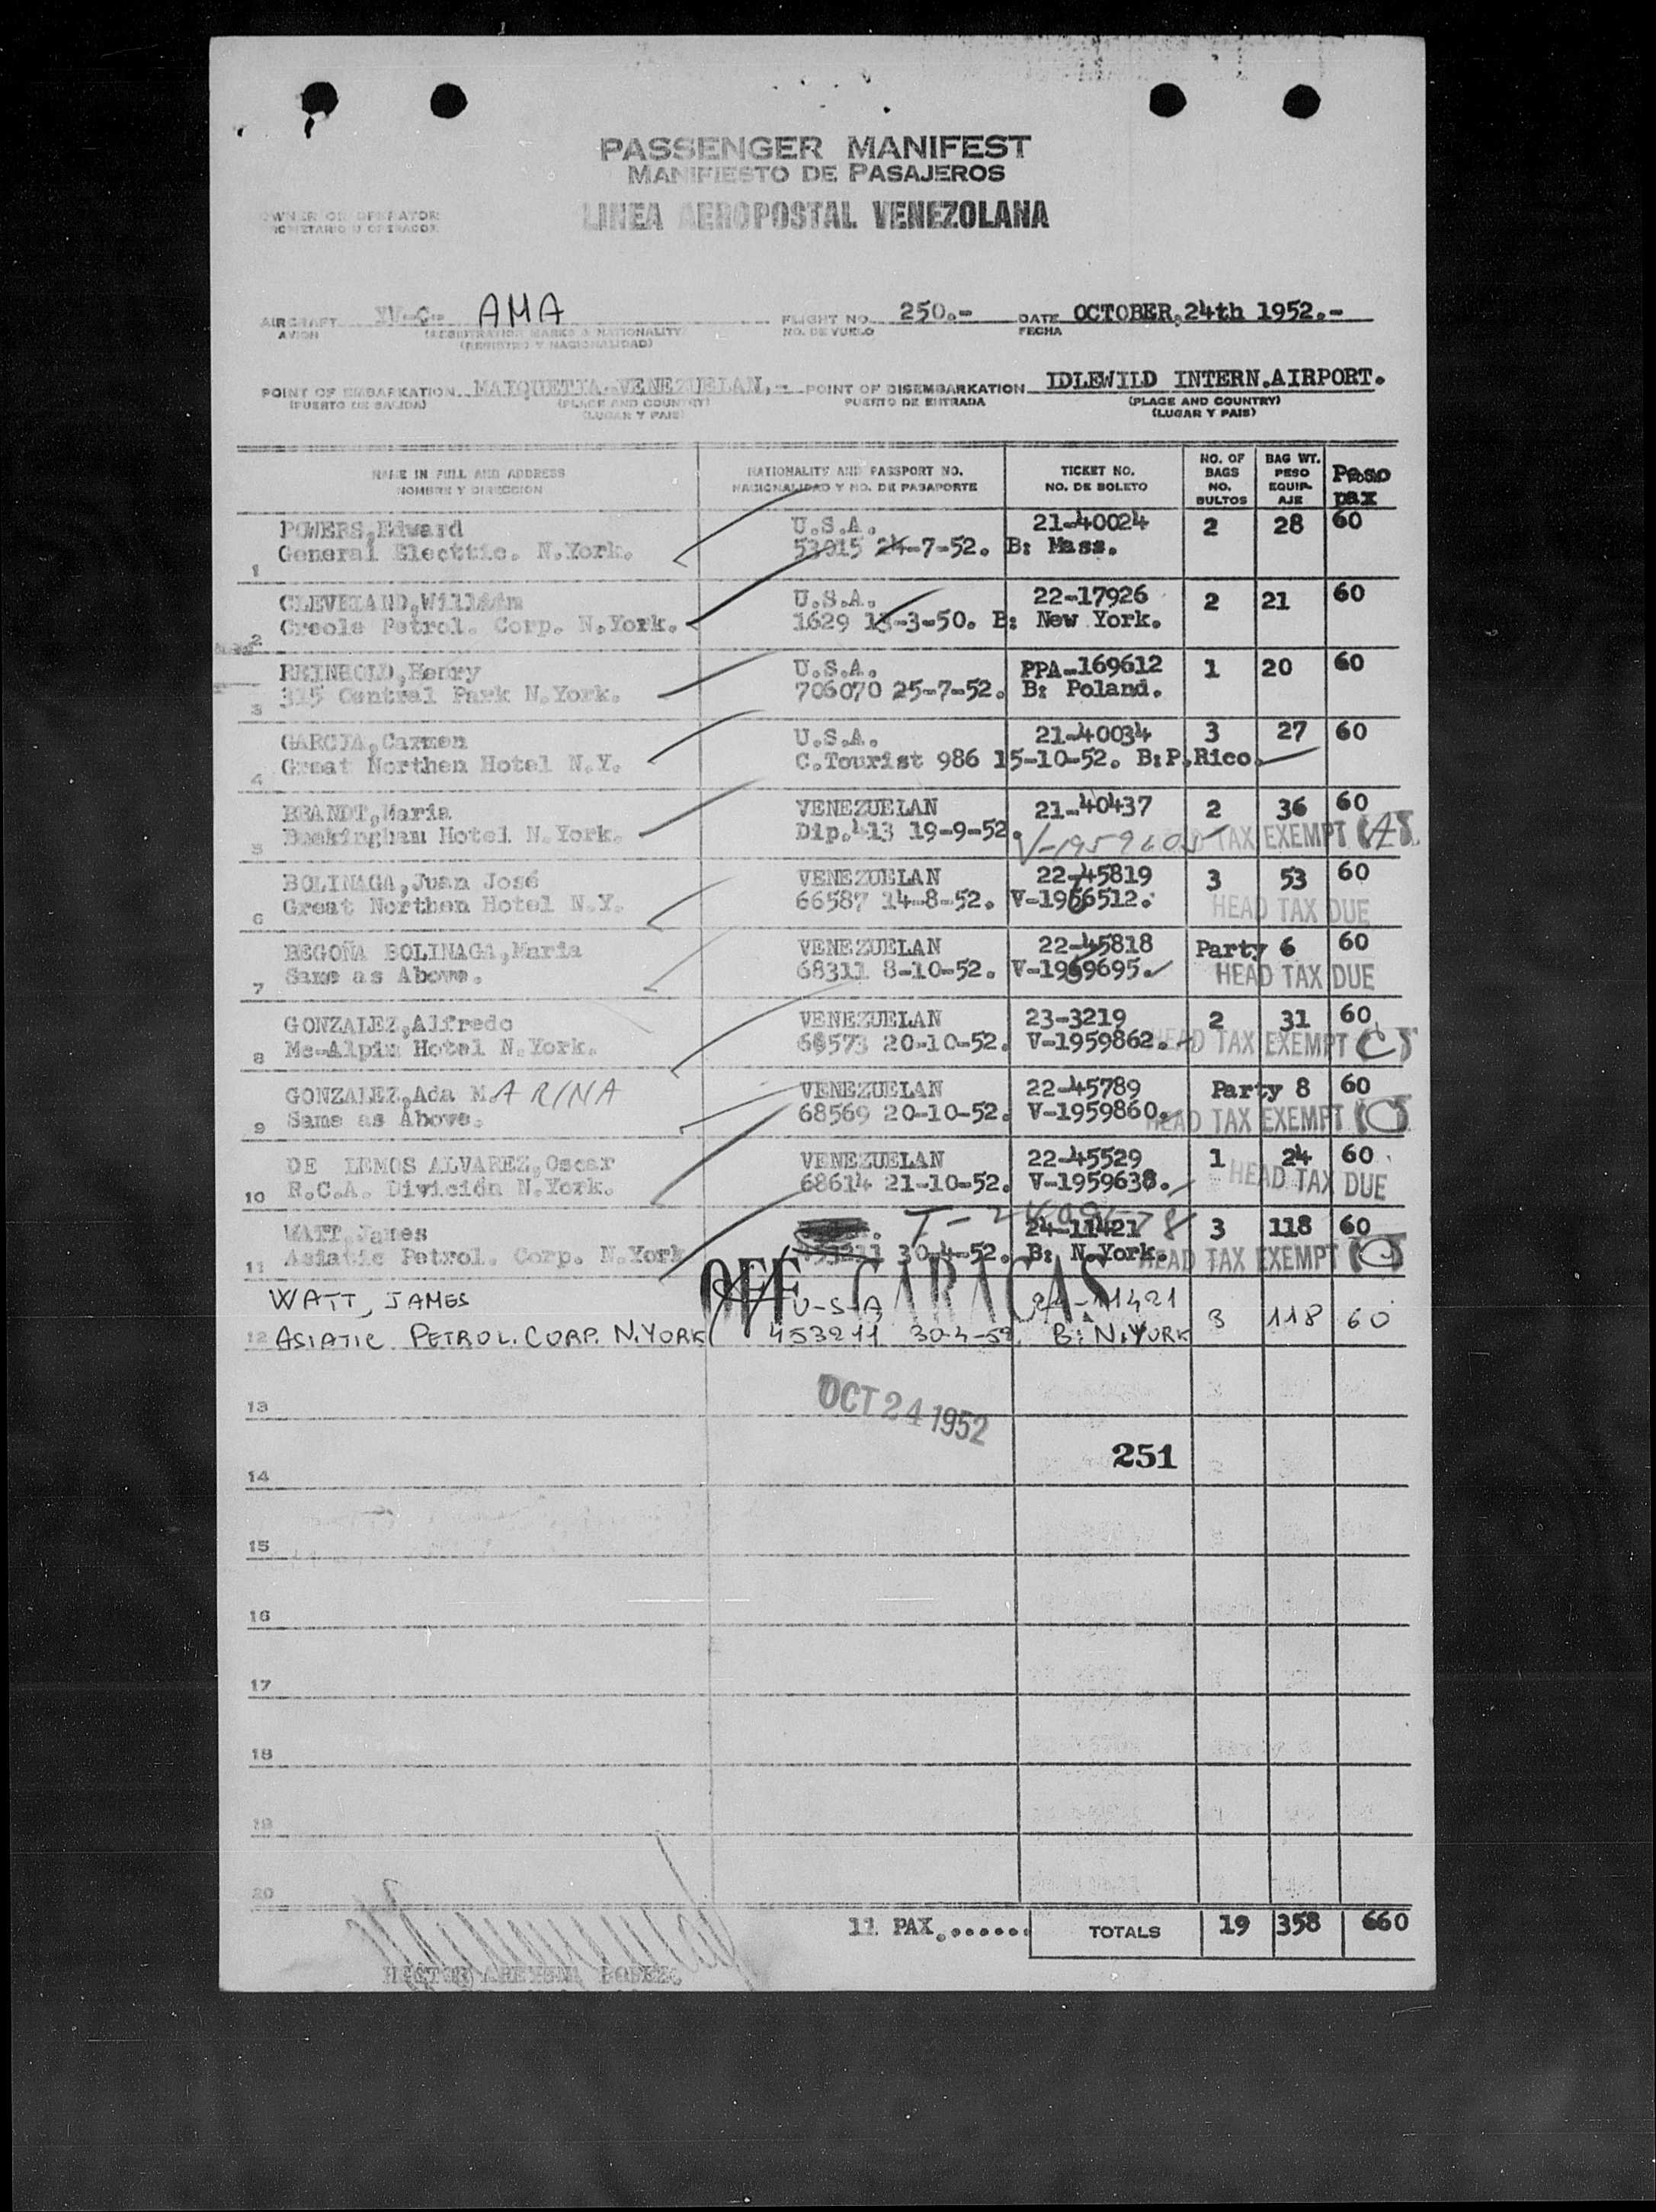 PASSENGER MANIFEST
MANIFIESTO DE PASAJEROS
OWNER OR OPERATOR
LINEA AEROPOSTAL VENEZOLANA
AIRCRAFT YV-C- AMA FLIGHT NO. 250.- DATE OCTOBER,24th 1952.-
AVION (REGISTRATION MARKS & NATIONALITY) NO. DE VUELO FECHA
(REGISTRO Y NACIONALIDAD)
POINT OF EMBARKATION MAIQUETIA-VENEZUELAN,- POINT OF DISEMBARKATION IDLEWILD INTERN.AIRPORT.
(PUERTO DE SALIDA) (PLACE AND COUNTRY) PUERTO DE ENTRADA (PLACE AND COUNTRY)
(LUGAR Y PAIS) (LUGAR Y PAIS)
NAME IN FULL AND ADDRESS NATIONALITY AND PASSPORT NO. TICKET NO. NO. OF BAGS BAG WT. Peso
NOMBRE Y DIRECCION NACIONALIDAD Y NO. DE PASAPORTE NO. DE BOLETO NO. BULTOS PESO EQUIPAJE pax
POWERS,Edward U.S.A. 21-40024 2 28 60
1 General Electtic. N.York. 53015 24-7-52. B: Mass.
CLEVELAND,William U.S.A. 22-17926 2 21 60
2 Creole Petrol. Corp. N.York. 1629 13-3-50. B: New York.
REINHOLD,Henry U.S.A. PPA-169612 1 20 60
3 315 Central Park N.York. 706070 25-7-52. B: Poland.
GARCIA,Carmen U.S.A. 21-40034 3 27 60
4 Great Northen Hotel N.Y. C.Tourist 986 15-10-52. B:P.Rico.
BRANDT,Maria VENEZUELAN 21-40437 2 36 60
5 Buckingham Hotel N.York. Dip.413 19-9-52. V-1959605 TAX EXEMPT
BOLINAGA,Juan José VENEZUELAN 22-45819 3 53 60
6 Great Northen Hotel N.Y. 66587 14-8-52. V-1956512. HEAD TAX DUE
BEGOÑA BOLINAGA,Maria VENEZUELAN 22-45818 Party 6 60
7 Same as Above. 68311 8-10-52. V-1959695. HEAD TAX DUE
GONZALEZ,Alfredo VENEZUELAN 23-3219 2 31 60
8 Mc-Alpin Hotel N.York. 68573 20-10-52. V-1959862. HEAD TAX EXEMPT
GONZALEZ,Ada MARINA VENEZUELAN 22-45789 Party 8 60
9 Same as Above. 68569 20-10-52. V-1959860. HEAD TAX EXEMPT
DE LEMOS ALVAREZ,Oscar VENEZUELAN 22-45529 1 24 60
10 R.C.A. División N.York. 68614 21-10-52. V-1959638. HEAD TAX DUE
WATT,James 24-11421 3 118 60
11 Asiatic Petrol. Corp. N.York 30-4-52. B: N.York. HEAD TAX EXEMPT
OFF CARACAS
WATT, JAMES U-S-A 24-11421 3 118 60
12 ASIATIC PETROL. CORP. N.YORK 453211 30-4-52 B: N.YORK
13
OCT 24 1952
251
14
15
16
17
18
19
20
11 PAX....... TOTALS 19 358 660